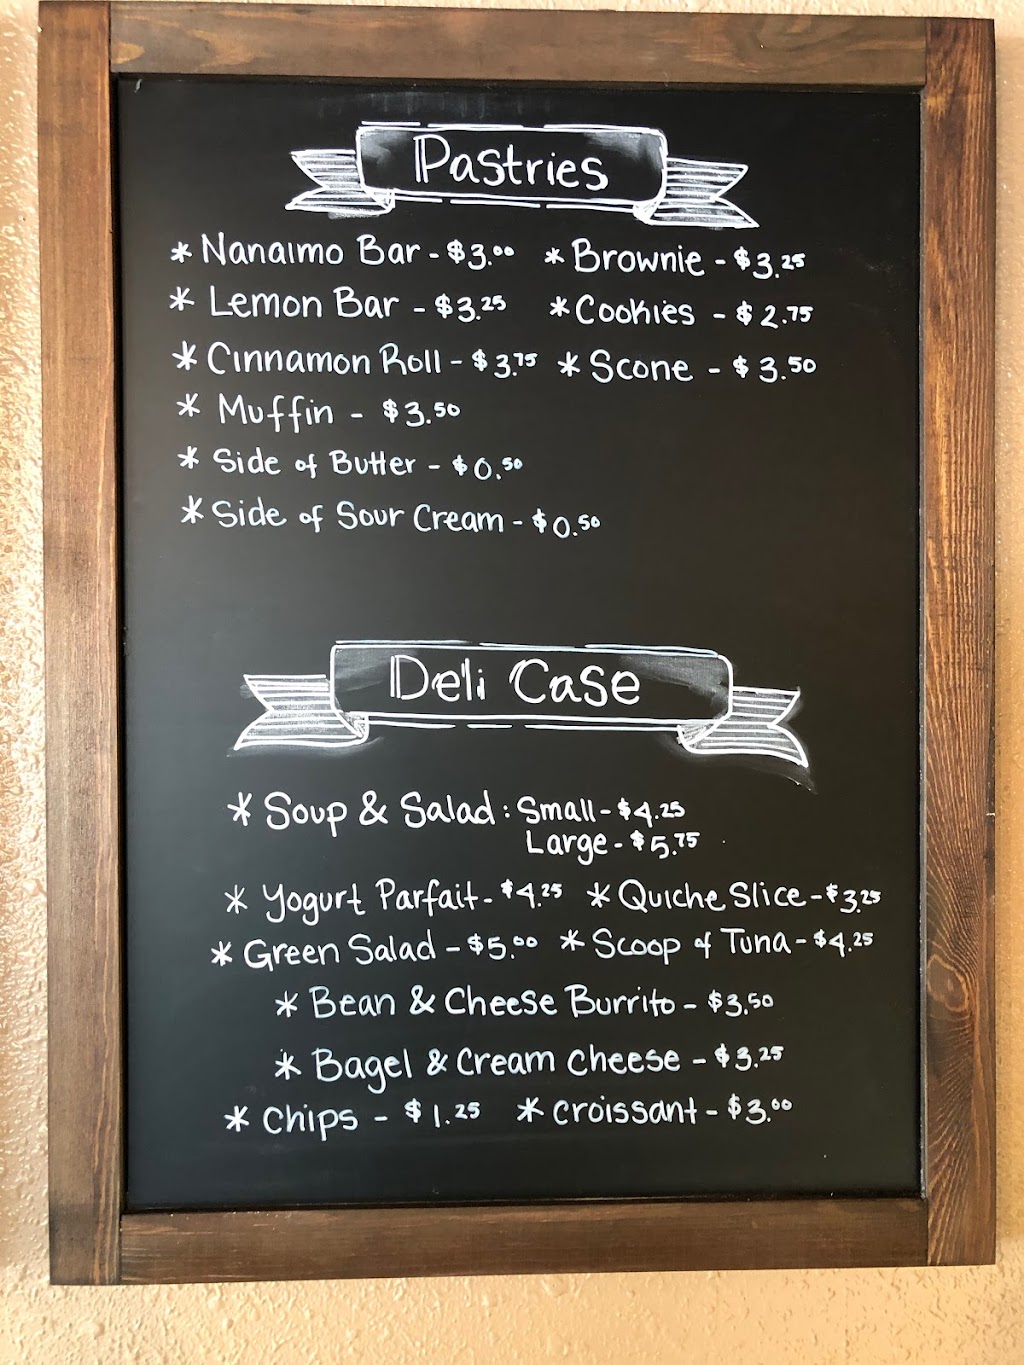 Pastries
* Nanaimo Bar - $3.00 * Brownie - $3.25
* Lemon Bar - $3.25 * Cookies - $2.75
* Cinnamon Roll - $3.75 * Scone - $3.50
* Muffin - $3.50
* Side of Butter - $0.50
* Side of Sour Cream - $0.50
Deli Case
* Soup & Salad: Small - $4.25
Large - $5.75
* Yogurt Parfait - $4.25 * Quiche Slice - $3.25
* Green Salad - $5.00 * Scoop of Tuna - $4.25
* Bean & Cheese Burrito - $3.50
* Bagel & Cream cheese - $3.25
* Chips - $1.25 * croissant - $3.00